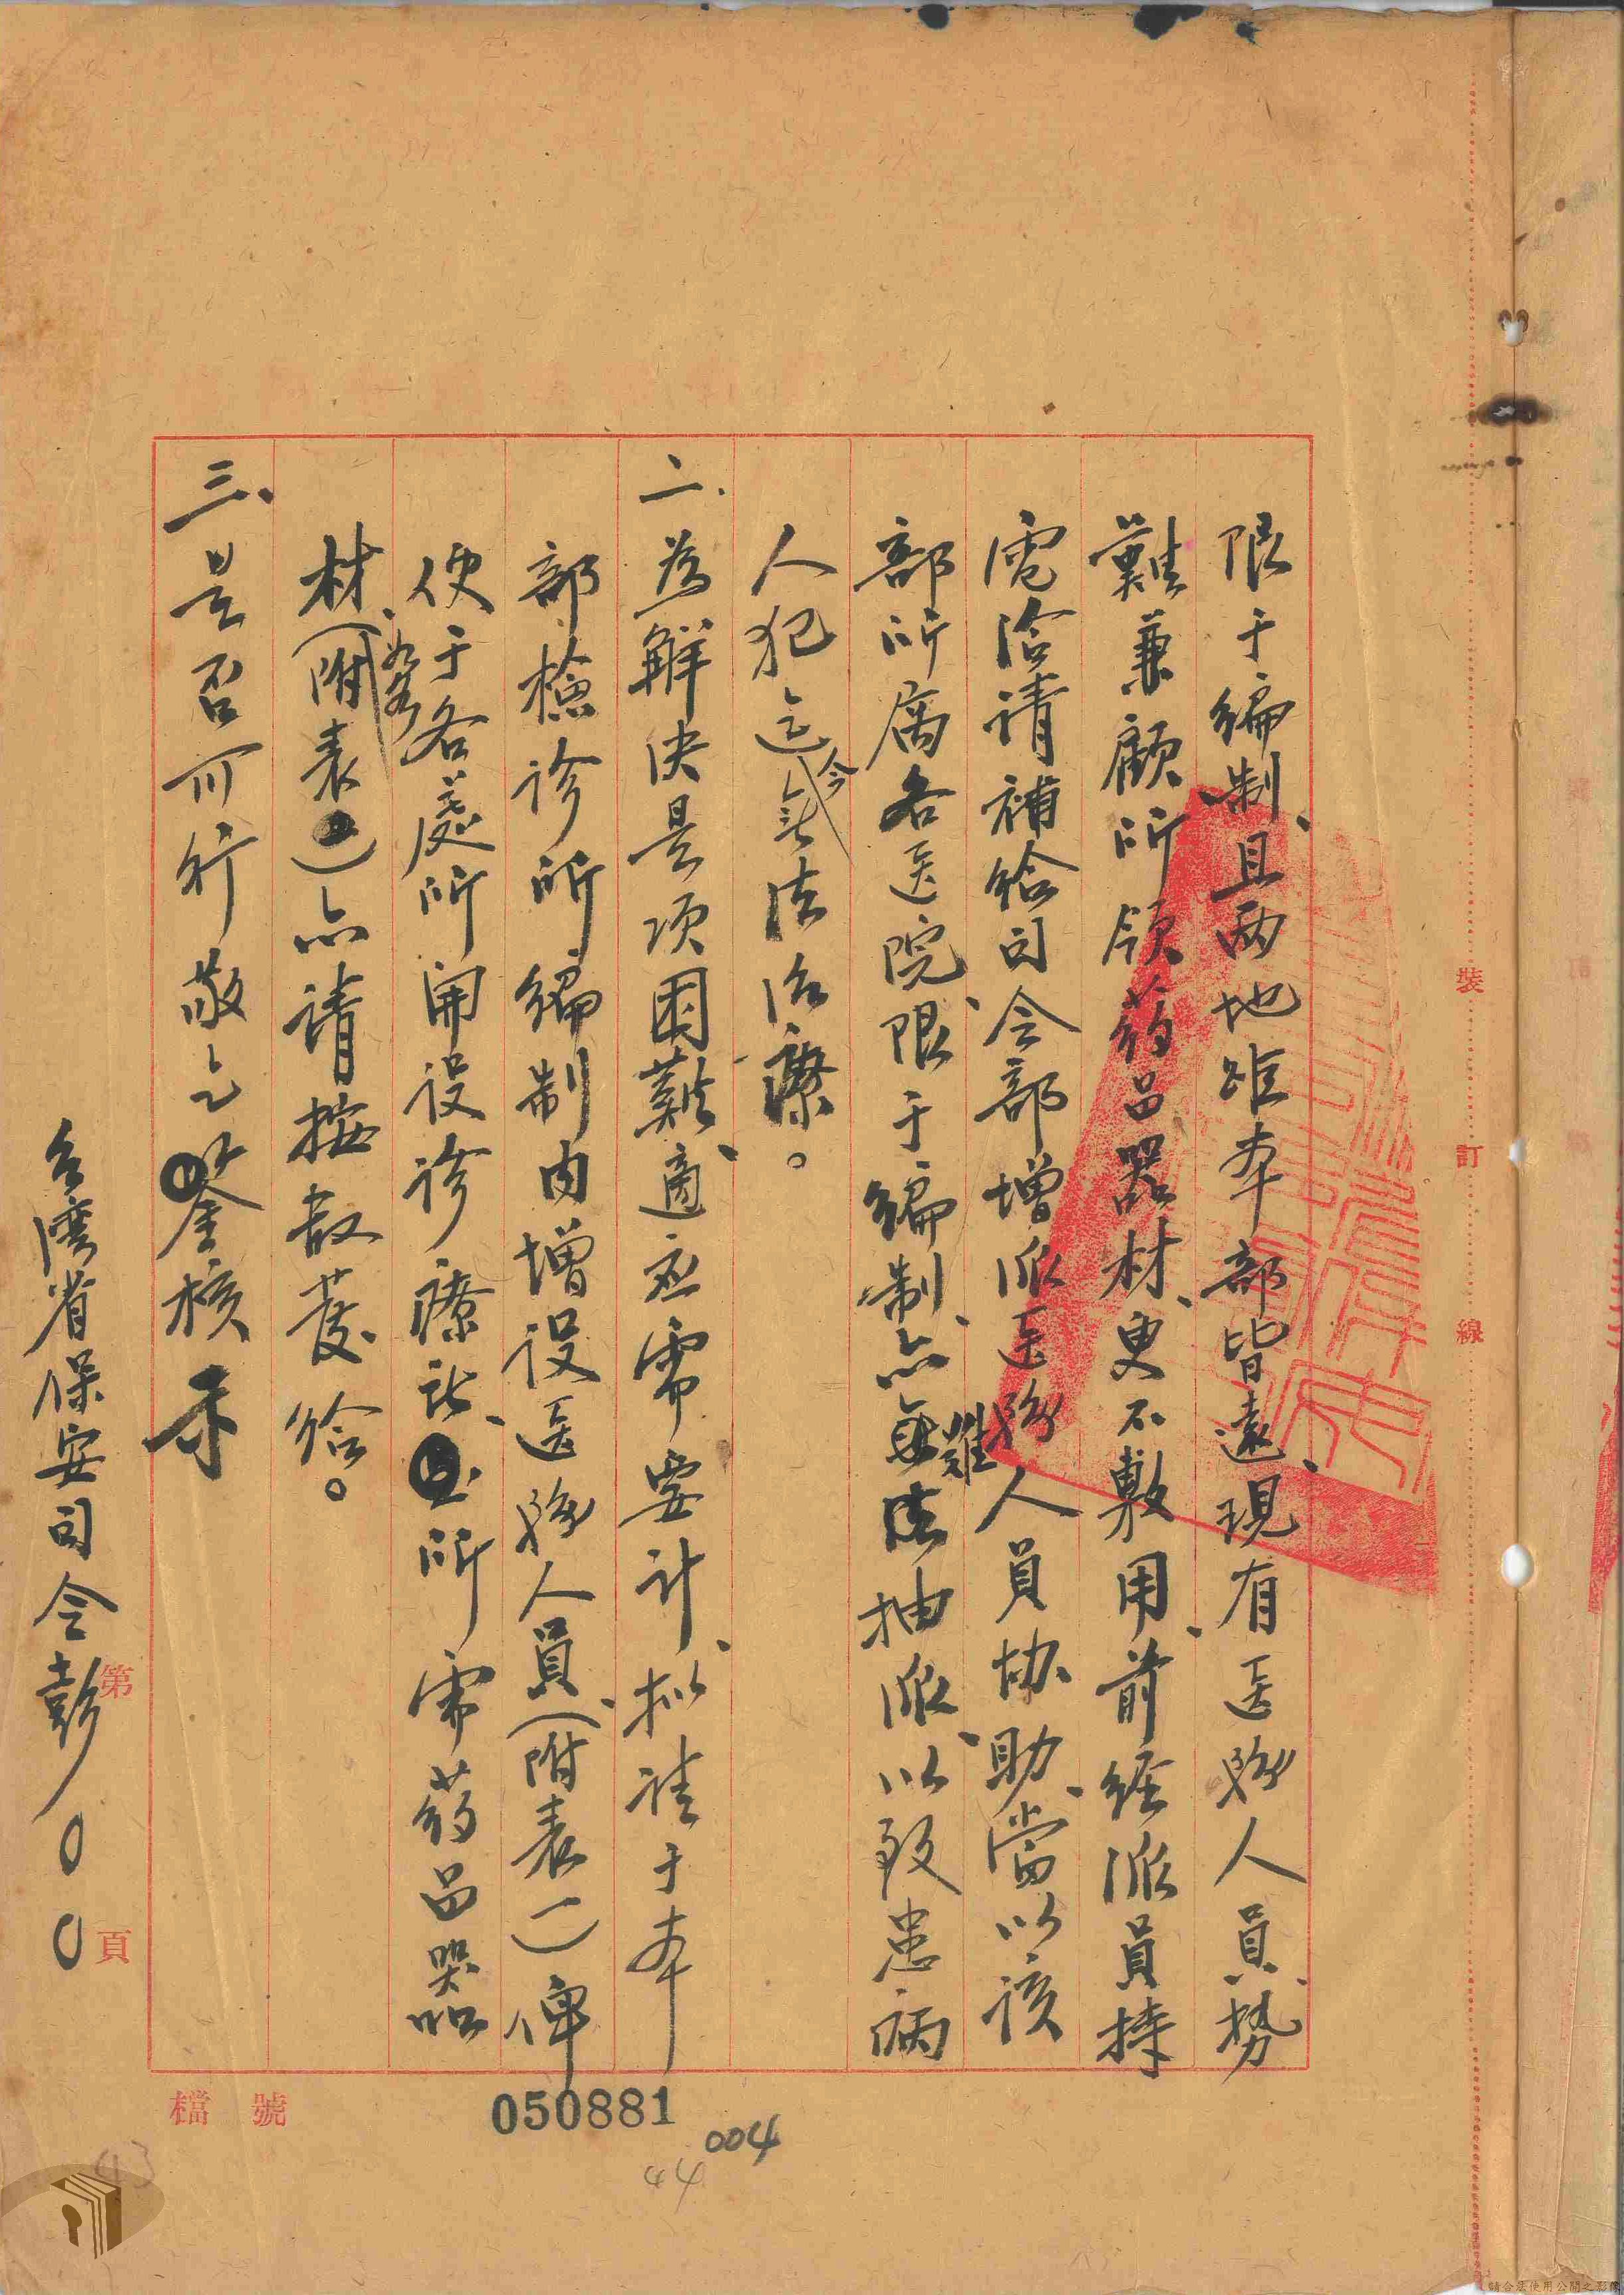 限于編制、且兩地距本部皆遠、現有医務人員、勢
難兼顧所領葯品器材、更不敷用、前經派員持
電洽請補給司令部增派医務人員協助、當以該
部所属各医院、限于編制、亦難抽派、以致患病
人犯迄今無法治療。
二、為解決是項困難、適應需要計、拟請于本
部檢診所編制内增設医務人員、(附表一)俾
便于各處所開設診療、所需葯品器
材、(附表二)亦請按放發給。
三、是否可行敬乞鑒核示
台湾省保安司令彭〇〇
第 頁
裝 訂 線
檔 號
050881
004
44
43